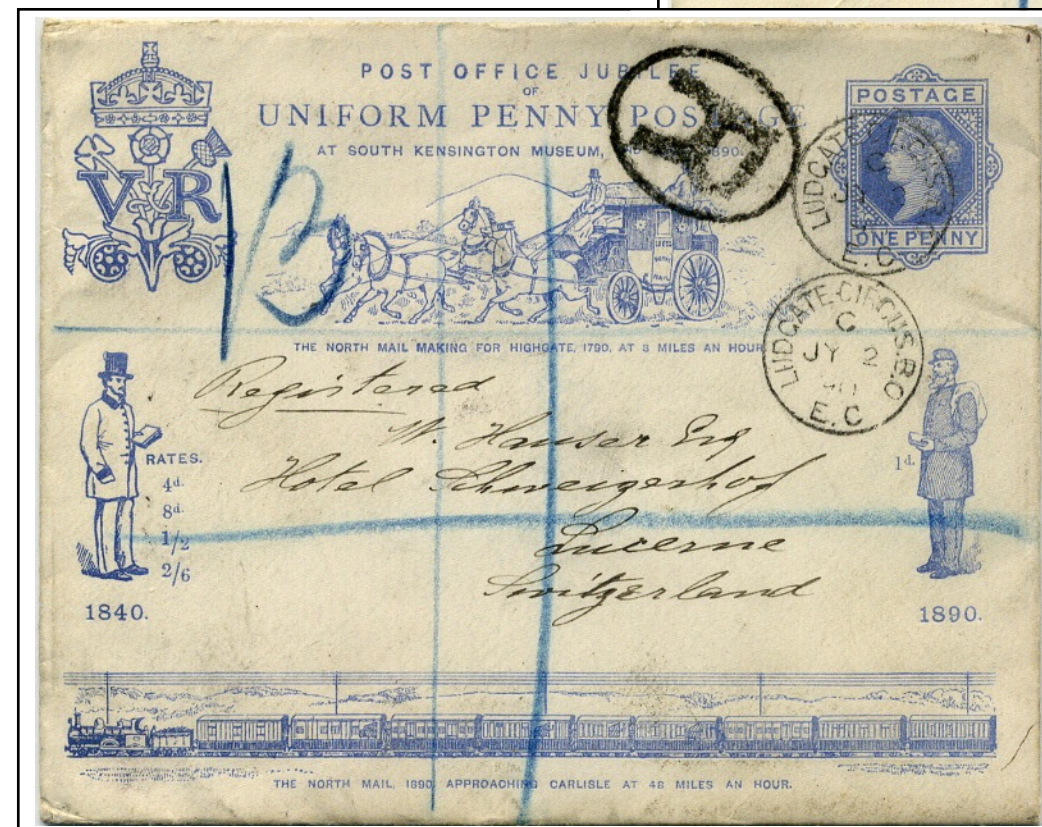 POST OFFICE JUBILEE
OF
UNIFORM PENNY POSTAGE
AT SOUTH KENSINGTON MUSEUM, 1890.
POSTAGE
ONE PENNY
VR
R
13
LUDGATE-CIRCUS.B.O
C
JY 2
E.C
LUDGATE-CIRCUS.B.O
C
JY 2
90
E.C
THE NORTH MAIL MAKING FOR HIGHGATE, 1790, AT 8 MILES AN HOUR
Registered
W. Hauser Esq
Hotel Schweizerhof
Lucerne
Switzerland
RATES.
4d.
8d.
1/2
2/6
1840.
1d.
1890.
THE NORTH MAIL, 1890, APPROACHING CARLISLE AT 48 MILES AN HOUR.